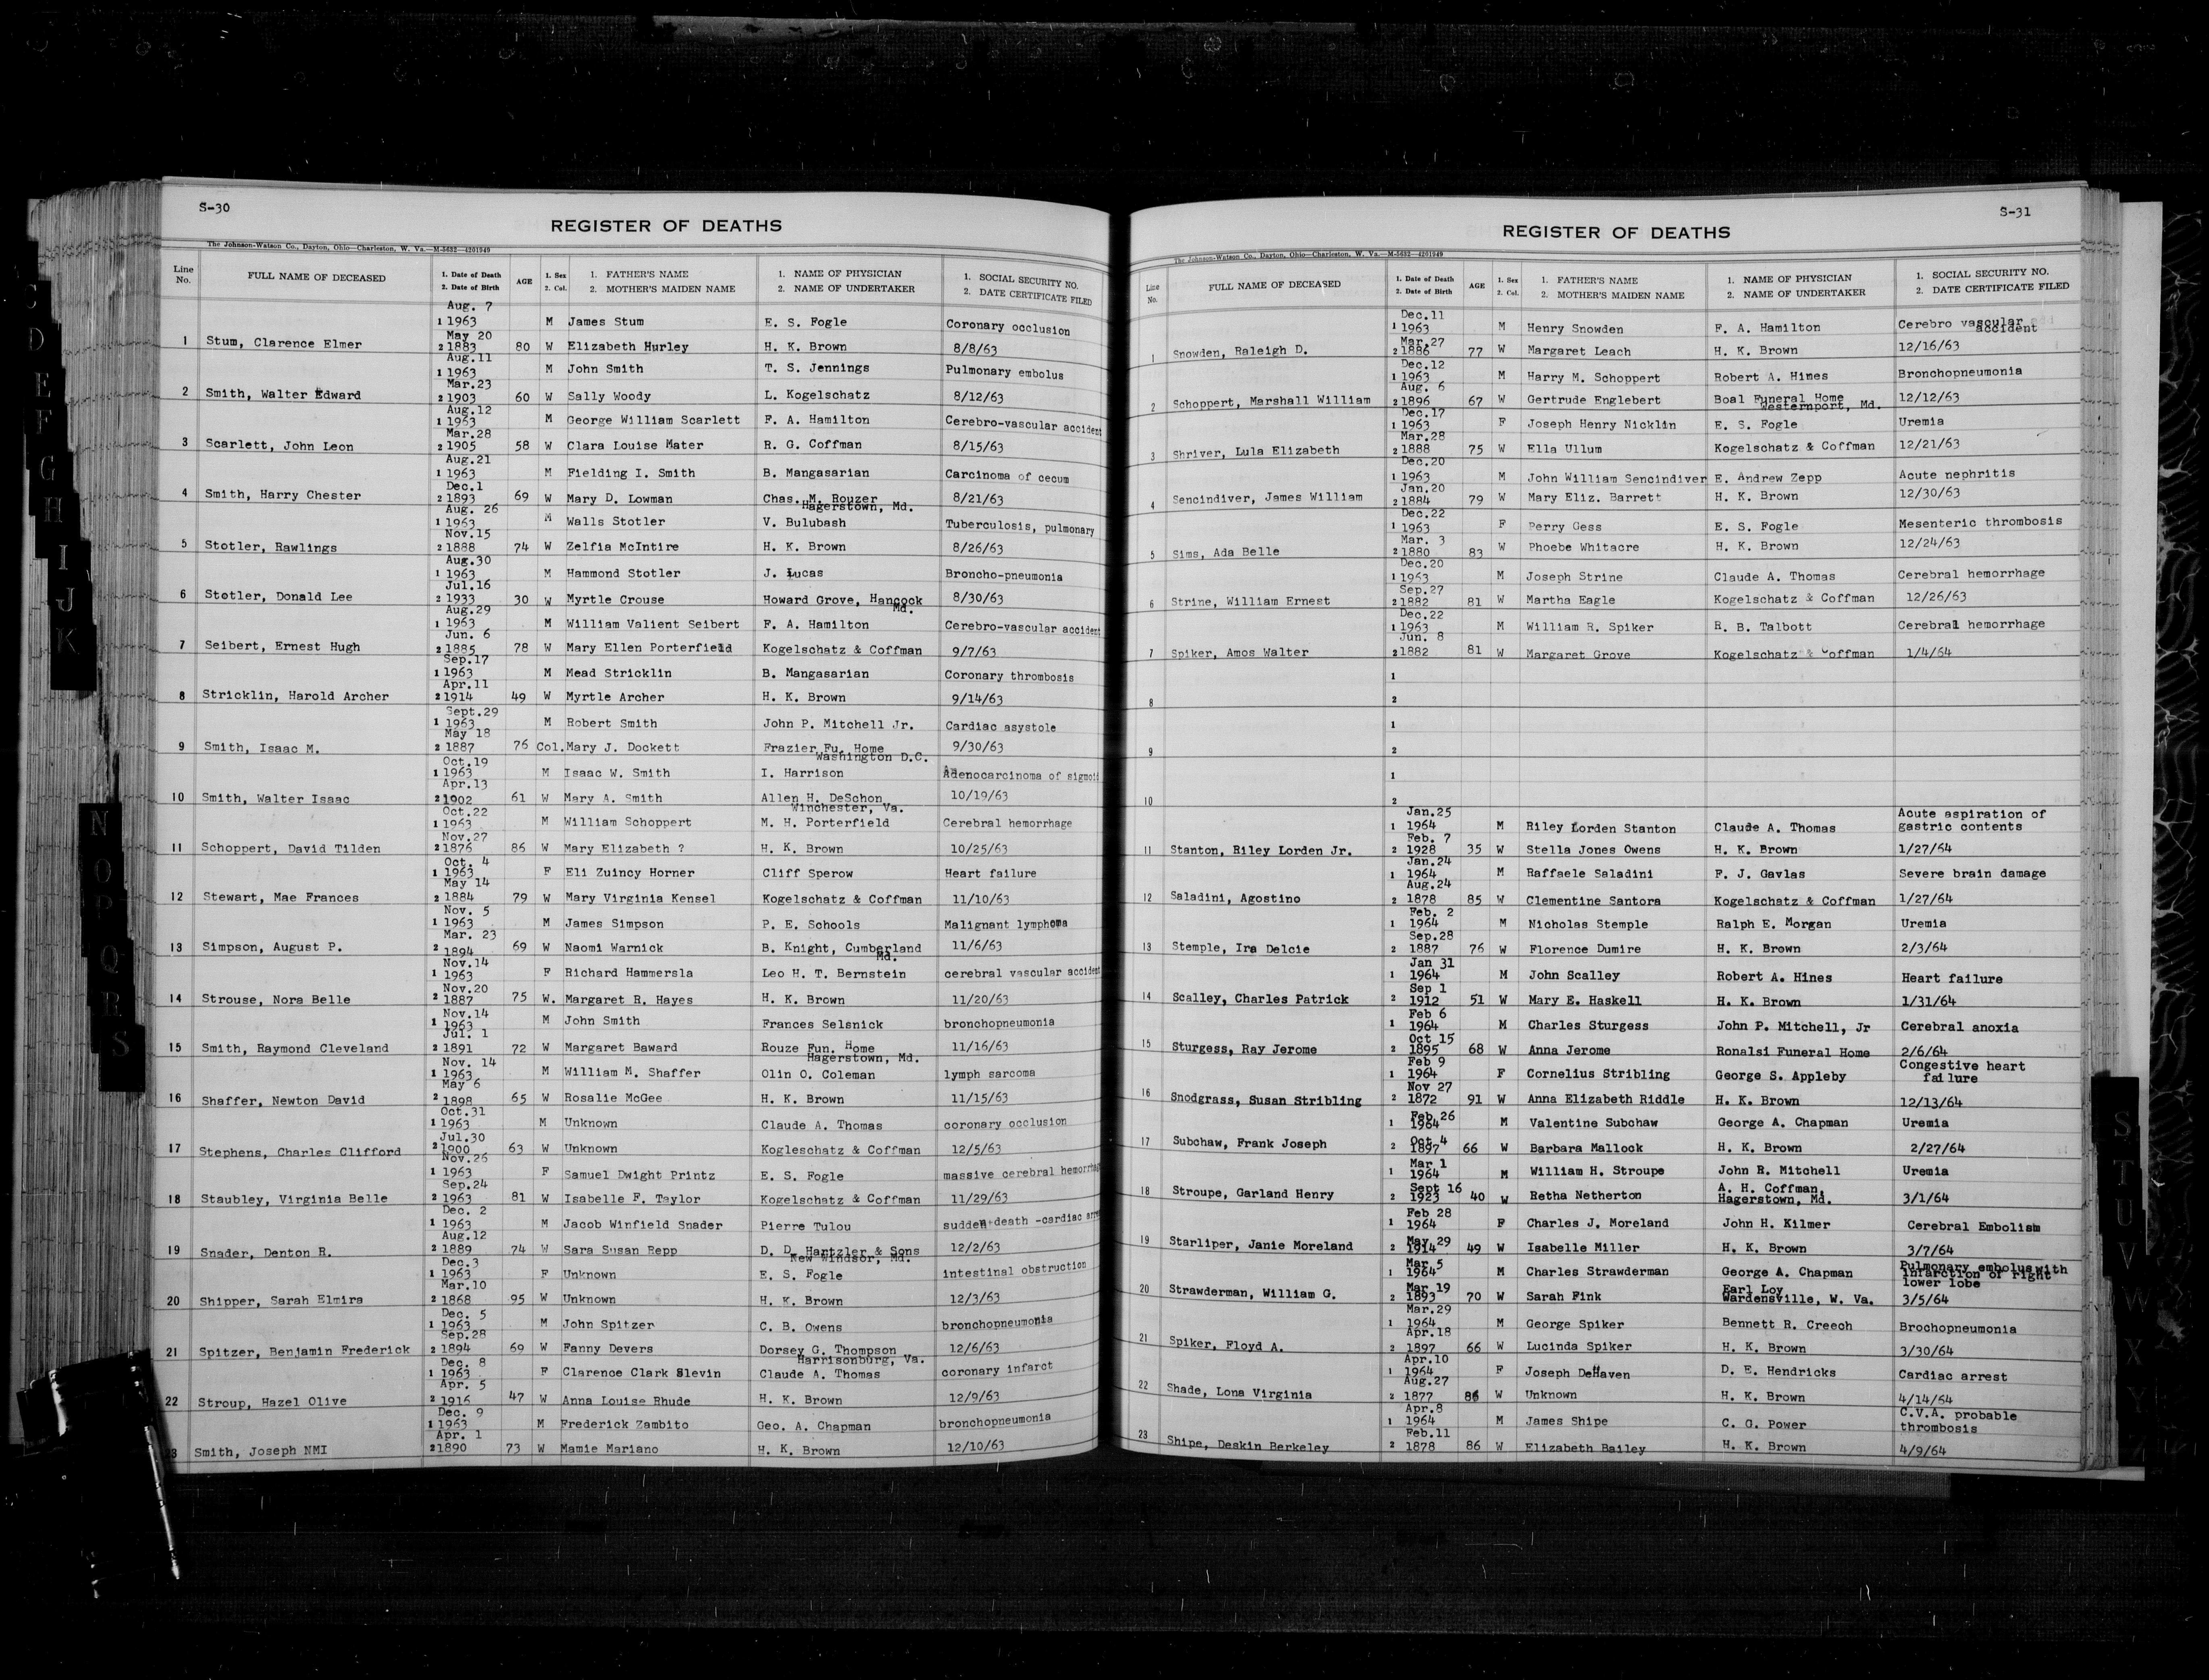 S-30
REGISTER OF DEATHS
The Johnson-Watson Co., Dayton, Ohio—Charleston, W. Va.—M-5632—4201949
Line No. FULL NAME OF DECEASED 1. Date of Death 2. Date of Birth AGE 1. Sex 2. Col. 1. FATHER'S NAME 2. MOTHER'S MAIDEN NAME 1. NAME OF PHYSICIAN 2. NAME OF UNDERTAKER 1. SOCIAL SECURITY NO. 2. DATE CERTIFICATE FILED
Aug. 7
1 1963 M James Stum E. S. Fogle Coronary occlusion
May 20
1 Stum, Clarence Elmer 2 1883 80 W Elizabeth Hurley H. K. Brown 8/8/63
Aug.11
1 1963 M John Smith T. S. Jennings Pulmonary embolus
Mar.23
2 Smith, Walter Edward 2 1903 60 W Sally Woody L. Kogelschatz 8/12/63
Aug.12
1 1963 M George William Scarlett F. A. Hamilton Cerebro-vascular accident
Mar.28
3 Scarlett, John Leon 2 1905 58 W Clara Louise Mater R. G. Coffman 8/15/63
Aug.21
1 1963 M Fielding I. Smith B. Mangasarian Carcinoma of cecum
Dec.1
4 Smith, Harry Chester 2 1893 69 W Mary D. Lowman Chas. M. Rouzer 8/21/63
Hagerstown, Md.
Aug. 26
1 1963 M Walls Stotler V. Bulubash Tuberculosis, pulmonary
Nov.15
5 Stotler, Rawlings 2 1888 74 W Zelfia McIntire H. K. Brown 8/26/63
Aug.30
1 1963 M Hammond Stotler J. Lucas Broncho-pneumonia
Jul.16
6 Stotler, Donald Lee 2 1933 30 W Myrtle Crouse Howard Grove, Hancock 8/30/63
Md.
Aug.29
1 1963 M William Valient Seibert F. A. Hamilton Cerebro-vascular accident
Jun. 6
7 Seibert, Ernest Hugh 2 1885 78 W Mary Ellen Porterfield Kogelschatz & Coffman 9/7/63
Sep.17
1 1963 M Mead Stricklin B. Mangasarian Coronary thrombosis
Apr.11
8 Stricklin, Harold Archer 2 1914 49 W Myrtle Archer H. K. Brown 9/14/63
Sept.29
1 1963 M Robert Smith John P. Mitchell Jr. Cardiac asystole
May 18
9 Smith, Isaac M. 2 1887 76 Col. Mary J. Dockett Frazier Fu. Home 9/30/63
Washington D.C.
Oct.19
1 1963 M Isaac W. Smith I. Harrison Adenocarcinoma of sigmoid
Apr.13
10 Smith, Walter Isaac 2 1902 61 W Mary A. Smith Allen H. DeSchon 10/19/63
Winchester, Va.
Oct.22
1 1963 M William Schoppert M. H. Porterfield Cerebral hemorrhage
Nov.27
11 Schoppert, David Tilden 2 1876 86 W Mary Elizabeth ? H. K. Brown 10/25/63
Oct. 4
1 1963 F Eli Zuincy Horner Cliff Sperow Heart failure
May 14
12 Stewart, Mae Frances 2 1884 79 W Mary Virginia Kensel Kogelschatz & Coffman 11/10/63
Nov. 5
1 1963 M James Simpson P. E. Schools Malignant lymphoma
Mar. 23
13 Simpson, August P. 2 1894 69 W Naomi Warnick B. Knight, Cumberland 11/6/63
Md.
Nov.14
1 1963 F Richard Hammersla Leo H. T. Bernstein cerebral vascular accident
Nov.20
14 Strouse, Nora Belle 2 1887 75 W. Margaret R. Hayes H. K. Brown 11/20/63
Nov.14
1 1963 M John Smith Frances Selsnick bronchopneumonia
Jul. 1
15 Smith, Raymond Cleveland 2 1891 72 W Margaret Baward Rouze Fun. Home 11/16/63
Hagerstown, Md.
Nov. 14
1 1963 M William M. Shaffer Olin O. Coleman lymph sarcoma
May 6
16 Shaffer, Newton David 2 1898 65 W Rosalie McGee H. K. Brown 11/15/63
Oct.31
1 1963 M Unknown Claude A. Thomas coronary occlusion
Jul.30
17 Stephens, Charles Clifford 2 1900 63 W Unknown Kogleschatz & Coffman 12/5/63
Nov.26
1 1963 F Samuel Dwight Printz E. S. Fogle massive cerebral hemorrhage
Sep.24
18 Staubley, Virginia Belle 2 1963 81 W Isabelle F. Taylor Kogelschatz & Coffman 11/29/63
Dec. 2
1 1963 M Jacob Winfield Snader Pierre Tulou sudden death -cardiac arrest
Aug.12
19 Snader, Denton R. 2 1889 74 W Sara Susan Repp D. D. Hartzler & Sons 12/2/63
New Windsor, Md.
Dec.3
1 1963 F Unknown E. S. Fogle intestinal obstruction
Mar.10
20 Shipper, Sarah Elmira 2 1868 95 W Unknown H. K. Brown 12/3/63
Dec. 5
1 1963 M John Spitzer C. B. Owens bronchopneumonia
Sep.28
21 Spitzer, Benjamin Frederick 2 1894 69 W Fanny Devers Dorsey G. Thompson 12/6/63
Harrisonburg, Va.
Dec. 8
1 1963 F Clarence Clark Slevin Claude A. Thomas coronary infarct
Apr. 5
22 Stroup, Hazel Olive 2 1916 47 W Anna Louise Rhude H. K. Brown 12/9/63
Dec. 9
1 1963 M Frederick Zambito Geo. A. Chapman bronchopneumonia
Apr. 1
23 Smith, Joseph NMI 2 1890 73 W Mamie Mariano H. K. Brown 12/10/63
S-31
REGISTER OF DEATHS
The Johnson-Watson Co., Dayton, Ohio—Charleston, W. Va.—M-5632—4201949
Line No. FULL NAME OF DECEASED 1. Date of Death 2. Date of Birth AGE 1. Sex 2. Col. 1. FATHER'S NAME 2. MOTHER'S MAIDEN NAME 1. NAME OF PHYSICIAN 2. NAME OF UNDERTAKER 1. SOCIAL SECURITY NO. 2. DATE CERTIFICATE FILED
Dec.11
1 1963 M Henry Snowden F. A. Hamilton Cerebro vascular accident
Mar.27
1 Snowden, Raleigh D. 2 1886 77 W Margaret Leach H. K. Brown 12/16/63
Dec.12
1 1963 M Harry M. Schoppert Robert A. Hines Bronchopneumonia
Aug. 6
2 Schoppert, Marshall William 2 1896 67 W Gertrude Englebert Boal Funeral Home 12/12/63
Westernport, Md.
Dec.17
1 1963 F Joseph Henry Nicklin E. S. Fogle Uremia
Mar.28
3 Shriver, Lula Elizabeth 2 1888 75 W Ella Ullum Kogelschatz & Coffman 12/21/63
Dec.20
1 1963 M John William Sencindiver E. Andrew Zepp Acute nephritis
Jan.20
4 Sencindiver, James William 2 1884 79 W Mary Eliz. Barrett H. K. Brown 12/30/63
Dec.22
1 1963 F Perry Gess E. S. Fogle Mesenteric thrombosis
Mar. 3
5 Sims, Ada Belle 2 1880 83 W Phoebe Whitacre H. K. Brown 12/24/63
Dec.20
1 1963 M Joseph Strine Claude A. Thomas Cerebral hemorrhage
Sep.27
6 Strine, William Ernest 2 1882 81 W Martha Eagle Kogelschatz & Coffman 12/26/63
Dec.22
1 1963 M William R. Spiker R. B. Talbott Cerebral hemorrhage
Jun. 8
7 Spiker, Amos Walter 2 1882 81 W Margaret Grove Kogelschatz & Coffman 1/4/64
1
8 2
1
9 2
1
10 2
Jan.25 Acute aspiration of
1 1964 M Riley Lorden Stanton Claude A. Thomas gastric contents
Feb. 7
11 Stanton, Riley Lorden Jr. 2 1928 35 W Stella Jones Owens H. K. Brown 1/27/64
Jan.24
1 1964 M Raffaele Saladini F. J. Gavlas Severe brain damage
Aug.24
12 Saladini, Agostino 2 1878 85 W Clementine Santora Kogelschatz & Coffman 1/27/64
Feb. 2
1 1964 M Nicholas Stemple Ralph E. Morgan Uremia
Sep.28
13 Stemple, Ira Delcie 2 1887 76 W Florence Dumire H. K. Brown 2/3/64
Jan 31
1 1964 M John Scalley Robert A. Hines Heart failure
Sep 1
14 Scalley, Charles Patrick 2 1912 51 W Mary E. Haskell H. K. Brown 1/31/64
Feb 6
1 1964 M Charles Sturgess John P. Mitchell, Jr Cerebral anoxia
Oct 15
15 Sturgess, Ray Jerome 2 1895 68 W Anna Jerome Ronalsi Funeral Home 2/6/64
Feb 9 Congestive heart
1 1964 F Cornelius Stribling George S. Appleby failure
Nov 27
16 Snodgrass, Susan Stribling 2 1872 91 W Anna Elizabeth Riddle H. K. Brown 12/13/64
Feb 26
1 1964 M Valentine Subchaw George A. Chapman Uremia
Oct 4
17 Subchaw, Frank Joseph 2 1897 66 W Barbara Mallock H. K. Brown 2/27/64
Mar 1
1 1964 M William H. Stroupe John R. Mitchell Uremia
Sept 16 A. H. Coffman,
18 Stroupe, Garland Henry 2 1923 40 W Retha Netherton Hagerstown, Md. 3/1/64
Feb 28
1 1964 F Charles J. Moreland John H. Kilmer Cerebral Embolism
May 29
19 Starliper, Janie Moreland 2 1914 49 W Isabelle Miller H. K. Brown 3/7/64
Mar 5 Pulmonary embolus with
1 1964 M Charles Strawderman George A. Chapman infarction of right
lower lobe
Mar 19 Earl Loy
20 Strawderman, William G. 2 1893 70 W Sarah Fink Wardensville, W. Va. 3/5/64
Mar.29
1 1964 M George Spiker Bennett R. Creech Brochopneumonia
Apr.18
21 Spiker, Floyd A. 2 1897 66 W Lucinda Spiker H. K. Brown 3/30/64
Apr.10
1 1964 F Joseph DeHaven D. E. Hendricks Cardiac arrest
Aug.27
22 Shade, Lona Virginia 2 1877 86 W Unknown H. K. Brown 4/14/64
Apr.8 C.V.A. probable
1 1964 M James Shipe C. G. Power thrombosis
Feb.11
23 Shipe, Deskin Berkeley 2 1878 86 W Elizabeth Bailey H. K. Brown 4/9/64
D
E
F
G
H
I
J
K
N
O
P
Q
R
S
S
T
U
V
W
X
Y